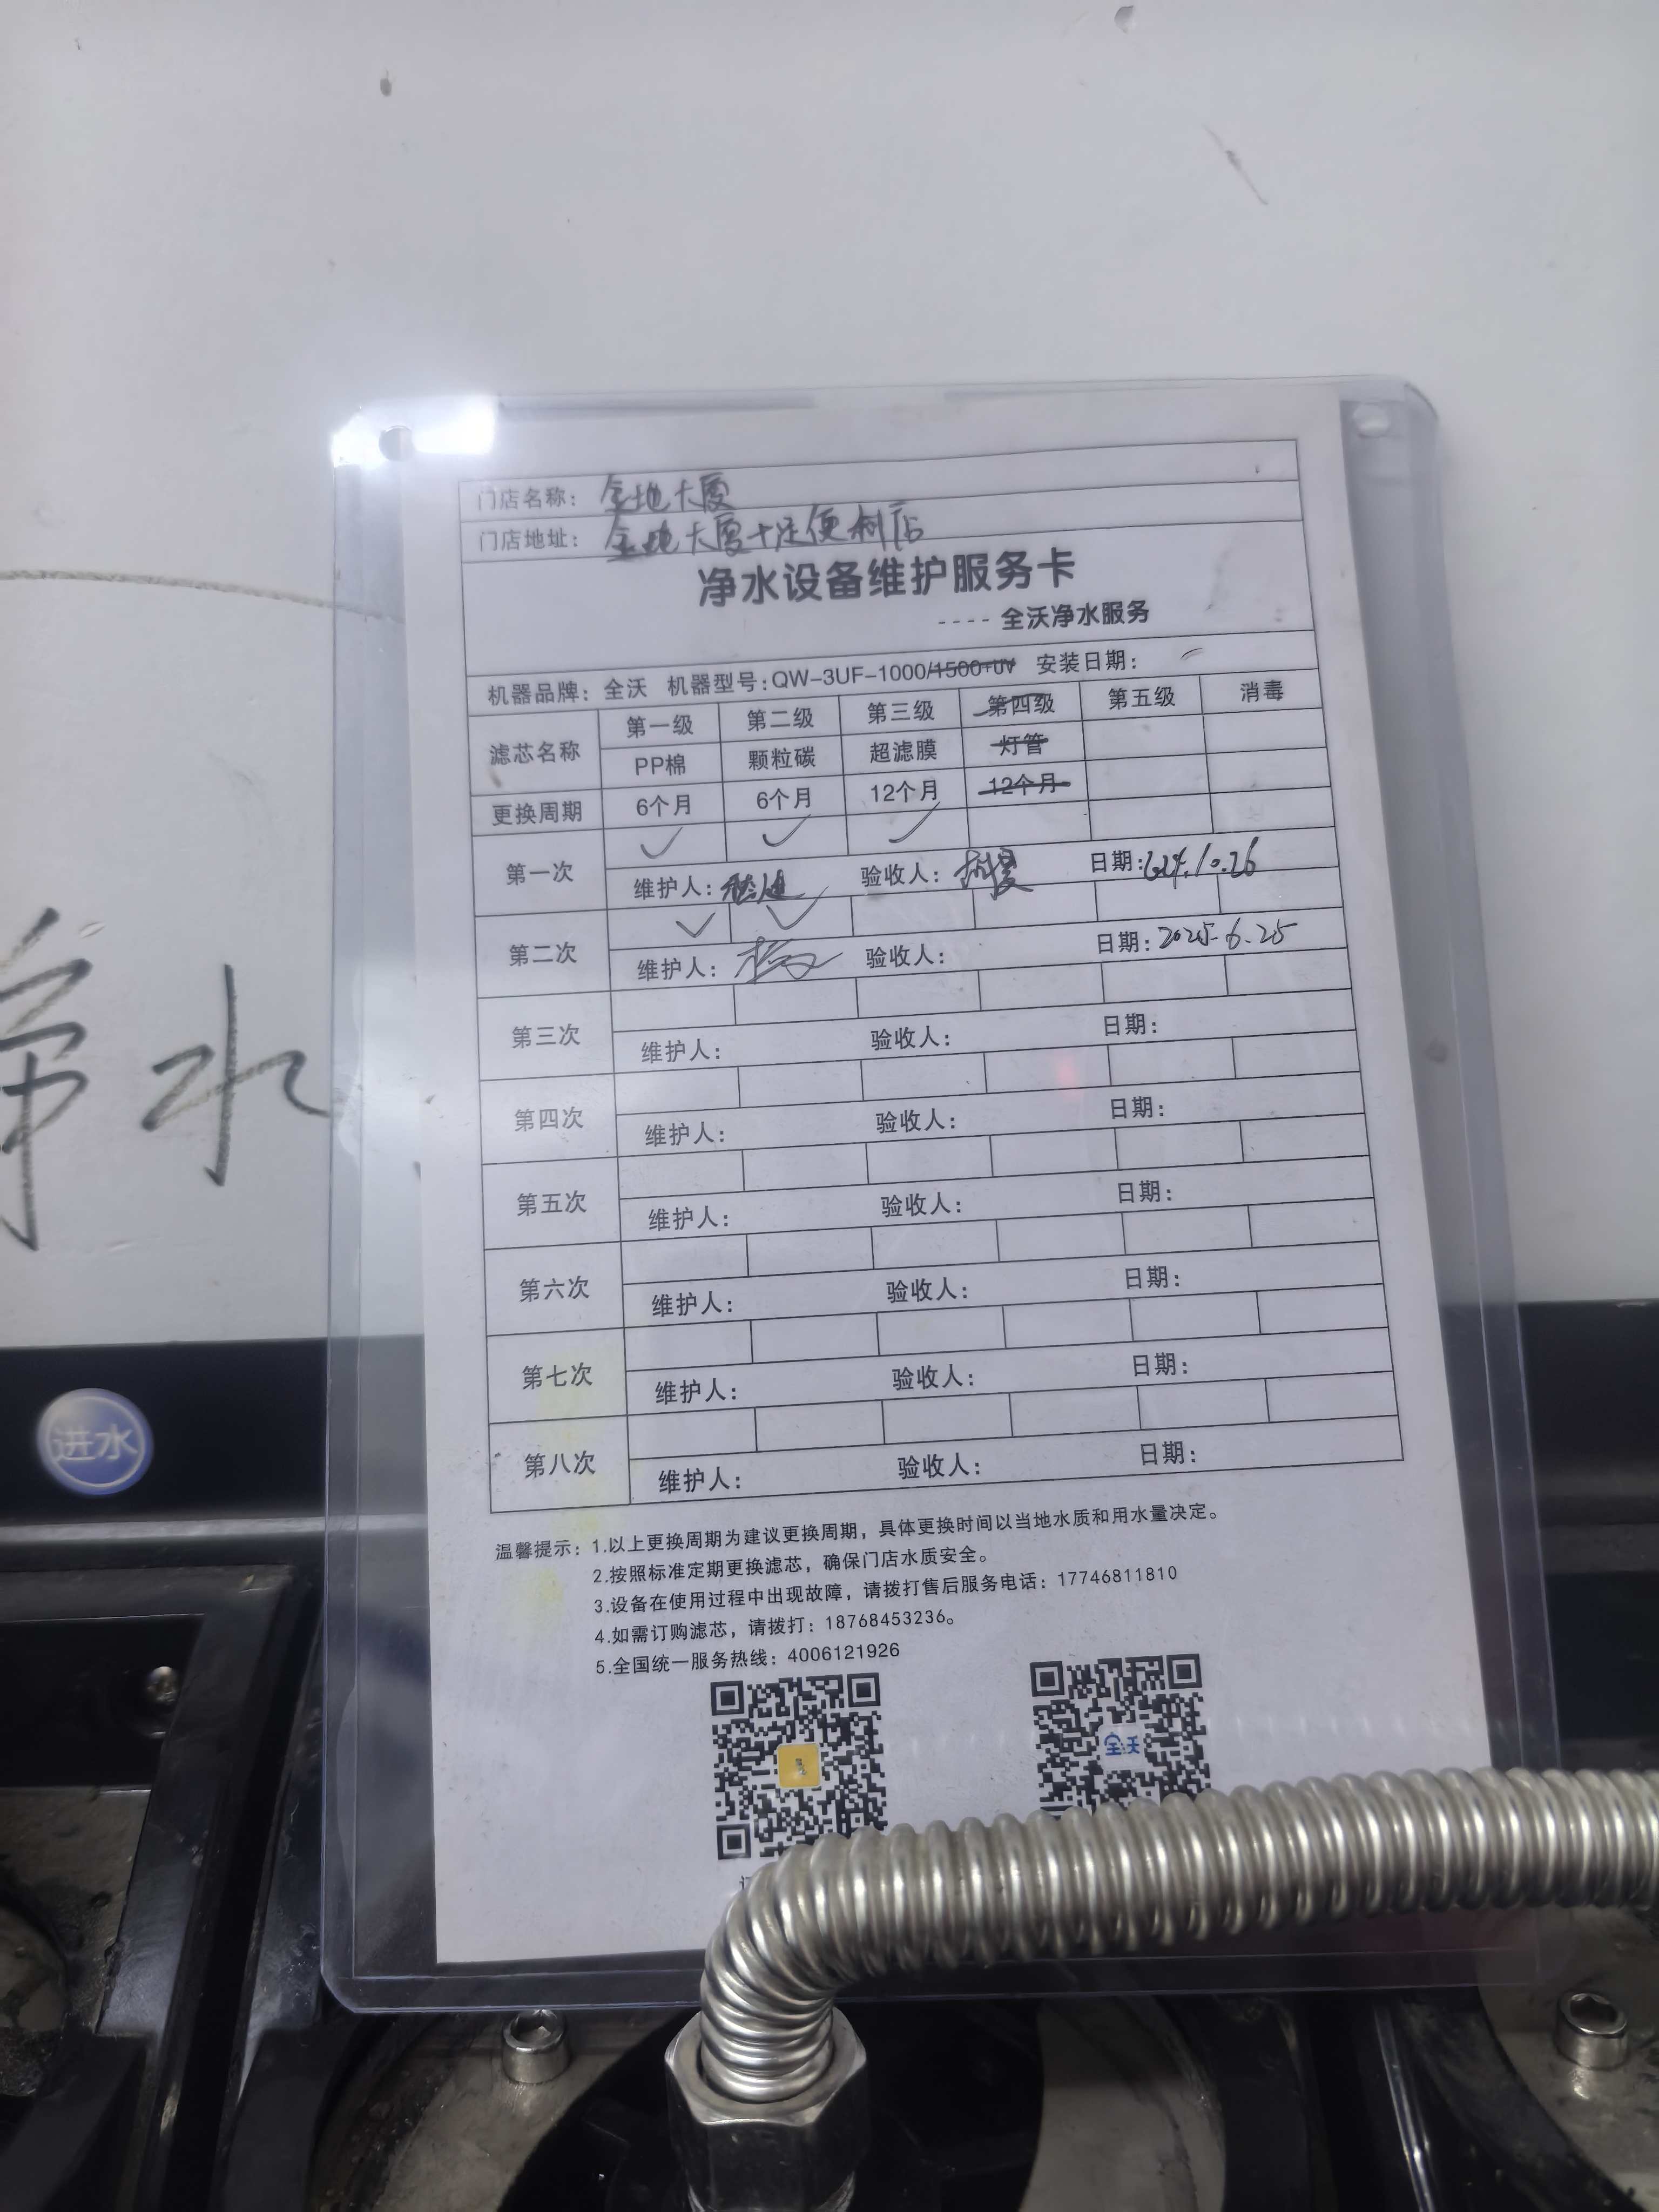 门店名称： 金地大厦
门店地址： 金地大厦十足便利店
净水设备维护服务卡
---- 全沃净水服务
机器品牌：全沃 机器型号：QW-3UF-1000/1500+UV 安装日期：
滤芯名称 第一级 第二级 第三级 第四级 第五级 消毒
PP棉 颗粒碳 超滤膜 灯管
更换周期 6个月 6个月 12个月 12个月
✓ ✓ ✓
第一次 维护人： 验收人： 日期：
✓ ✓
第二次 维护人： 验收人： 日期：2025.6.25
第三次 维护人： 验收人： 日期：
第四次 维护人： 验收人： 日期：
第五次 维护人： 验收人： 日期：
第六次 维护人： 验收人： 日期：
第七次 维护人： 验收人： 日期：
第八次 维护人： 验收人： 日期：
温馨提示：1.以上更换周期为建议更换周期，具体更换时间以当地水质和用水量决定。
2.按照标准定期更换滤芯，确保门店水质安全。
3.设备在使用过程中出现故障，请拨打售后服务电话：17746811810
4.如需订购滤芯，请拨打：18768453236。
5.全国统一服务热线：4006121926
全沃
水
进水